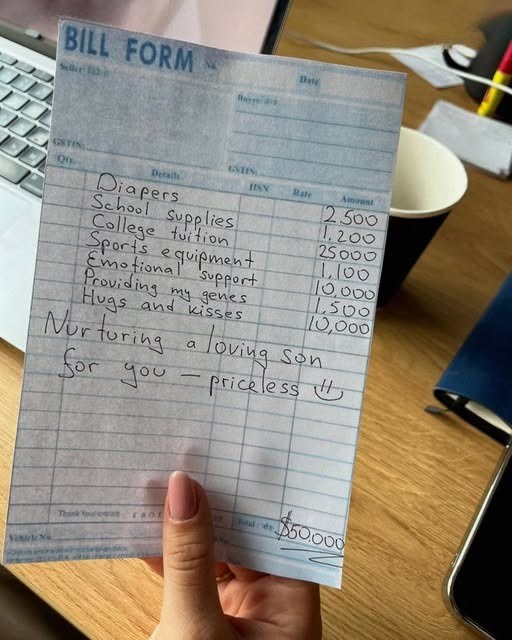 BILL FORM
Date
GSTIN:
GSTIN:
Qty. Details HSN Rate Amount
Diapers 2,500
School supplies 1,200
College tuition 25000
Sports equipment 1,100
Emotional support 10,000
Providing my genes 1,500
Hugs and kisses 10,000
Nurturing a loving son
for you — priceless :)
$50,000
Vehicle No